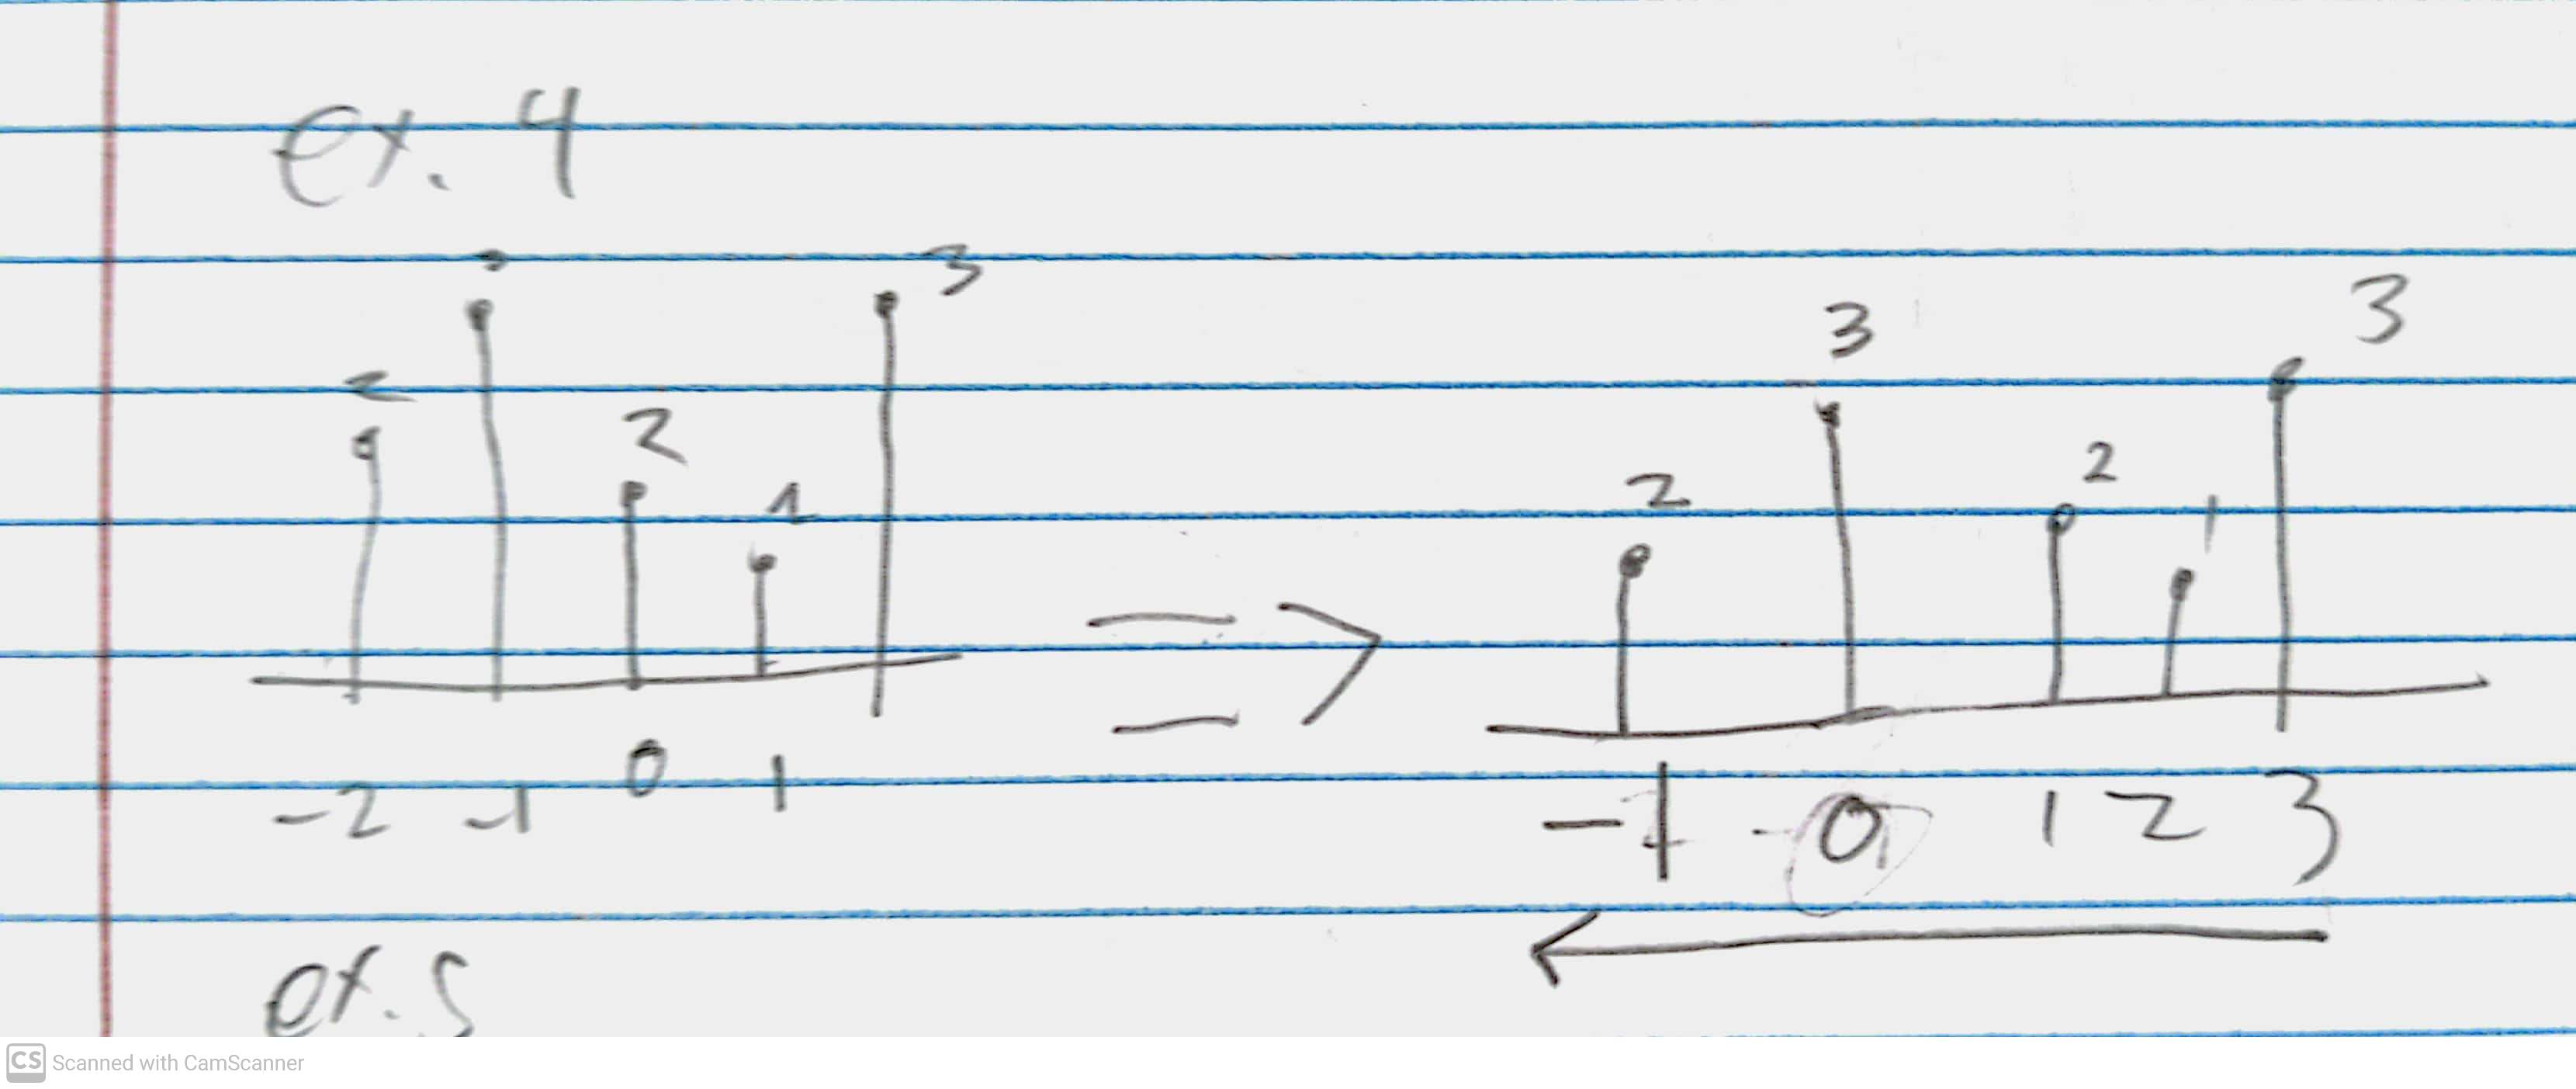 ex. 4
3
2 2 1
-2 -1 0 1
=>
3 3
2 2 1
-1 0 1 2 3
ex. 5
CS Scanned with CamScanner